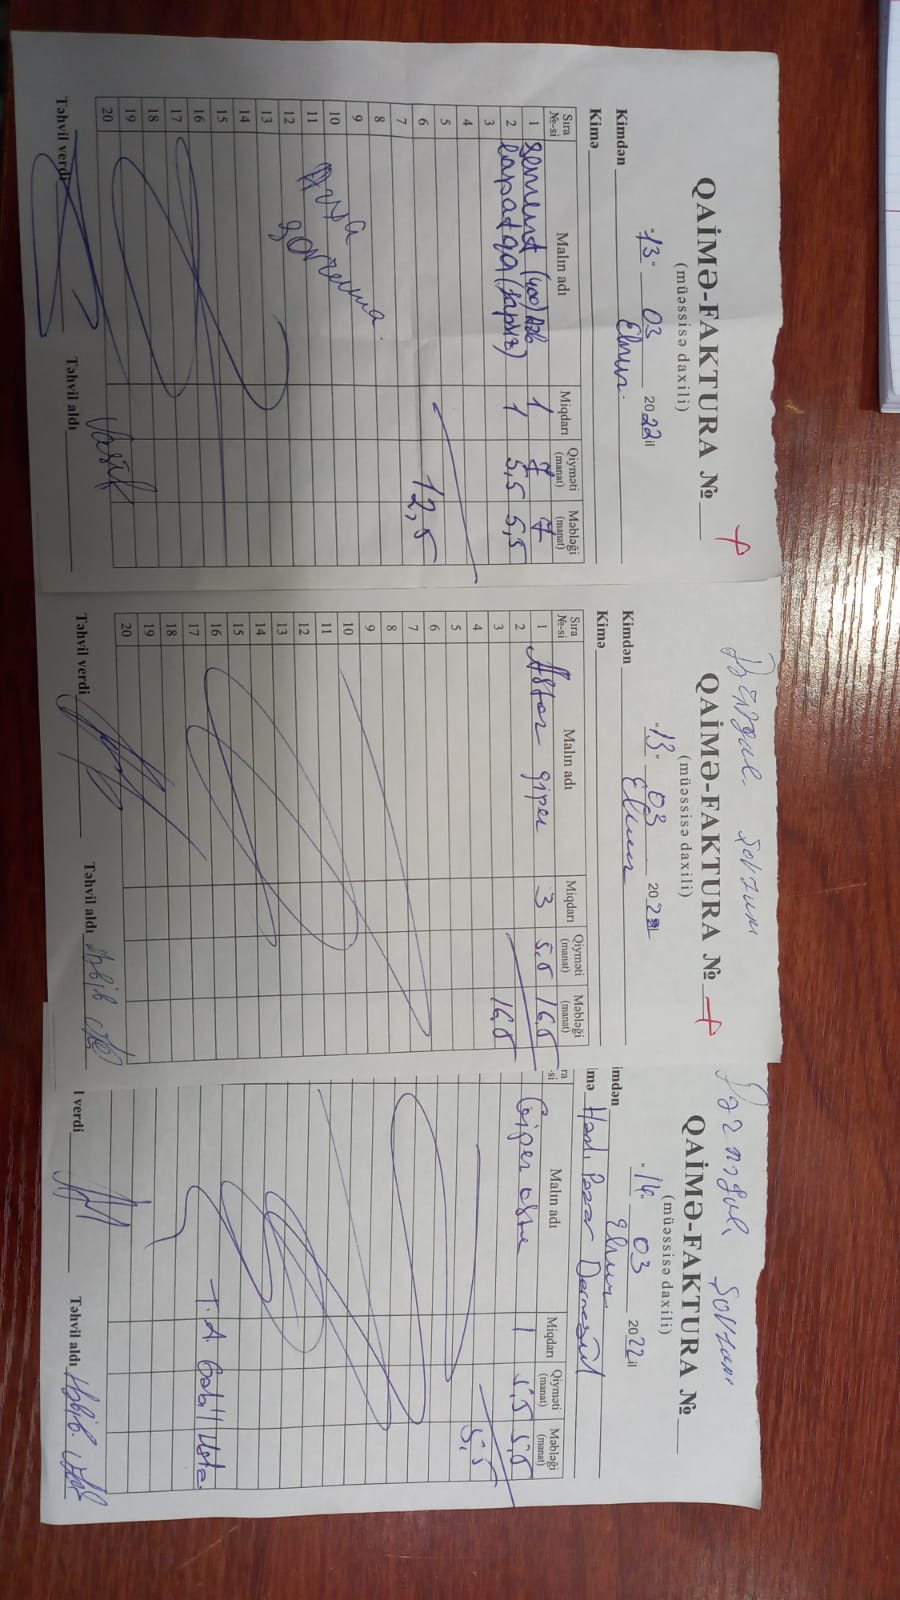 QAİMƏ-FAKTURA №
(müəssisə daxili)
"13" 03 2022il
Kimdən Elnur.
Kimə
Sıra №-si Malın adı Miqdarı Qiyməti (manat) Məbləği (manat)
1 sement (400) 1 7 7
2 lapatqa 1 5,5 5,5
3
4
5
6 12,5
7
8
9
10
11
12
13
14
15
16
17
18
19
20
Təhvil verdi Təhvil aldı Vasif
QAİMƏ-FAKTURA №
(müəssisə daxili)
"13" 03 2022
Kimdən Elnur
Kimə
Sıra №-si Malın adı Miqdarı Qiyməti (manat) Məbləği (manat)
1 Astar gips 3 5.5 16,5
2
3 16,5
4
5
6
7
8
9
10
11
12
13
14
15
16
17
18
19
20
Təhvil verdi Təhvil aldı Həbib
QAİMƏ-FAKTURA №
(müəssisə daxili)
"14" 03 2022il
imdən Elnur
imə Pazar Dərnəgül
ra -si Malın adı Miqdarı Qiyməti (manat) Məbləği (manat)
1 5,5 5,5
5,5
T.A. Usta.
l verdi Təhvil aldı Həbib.